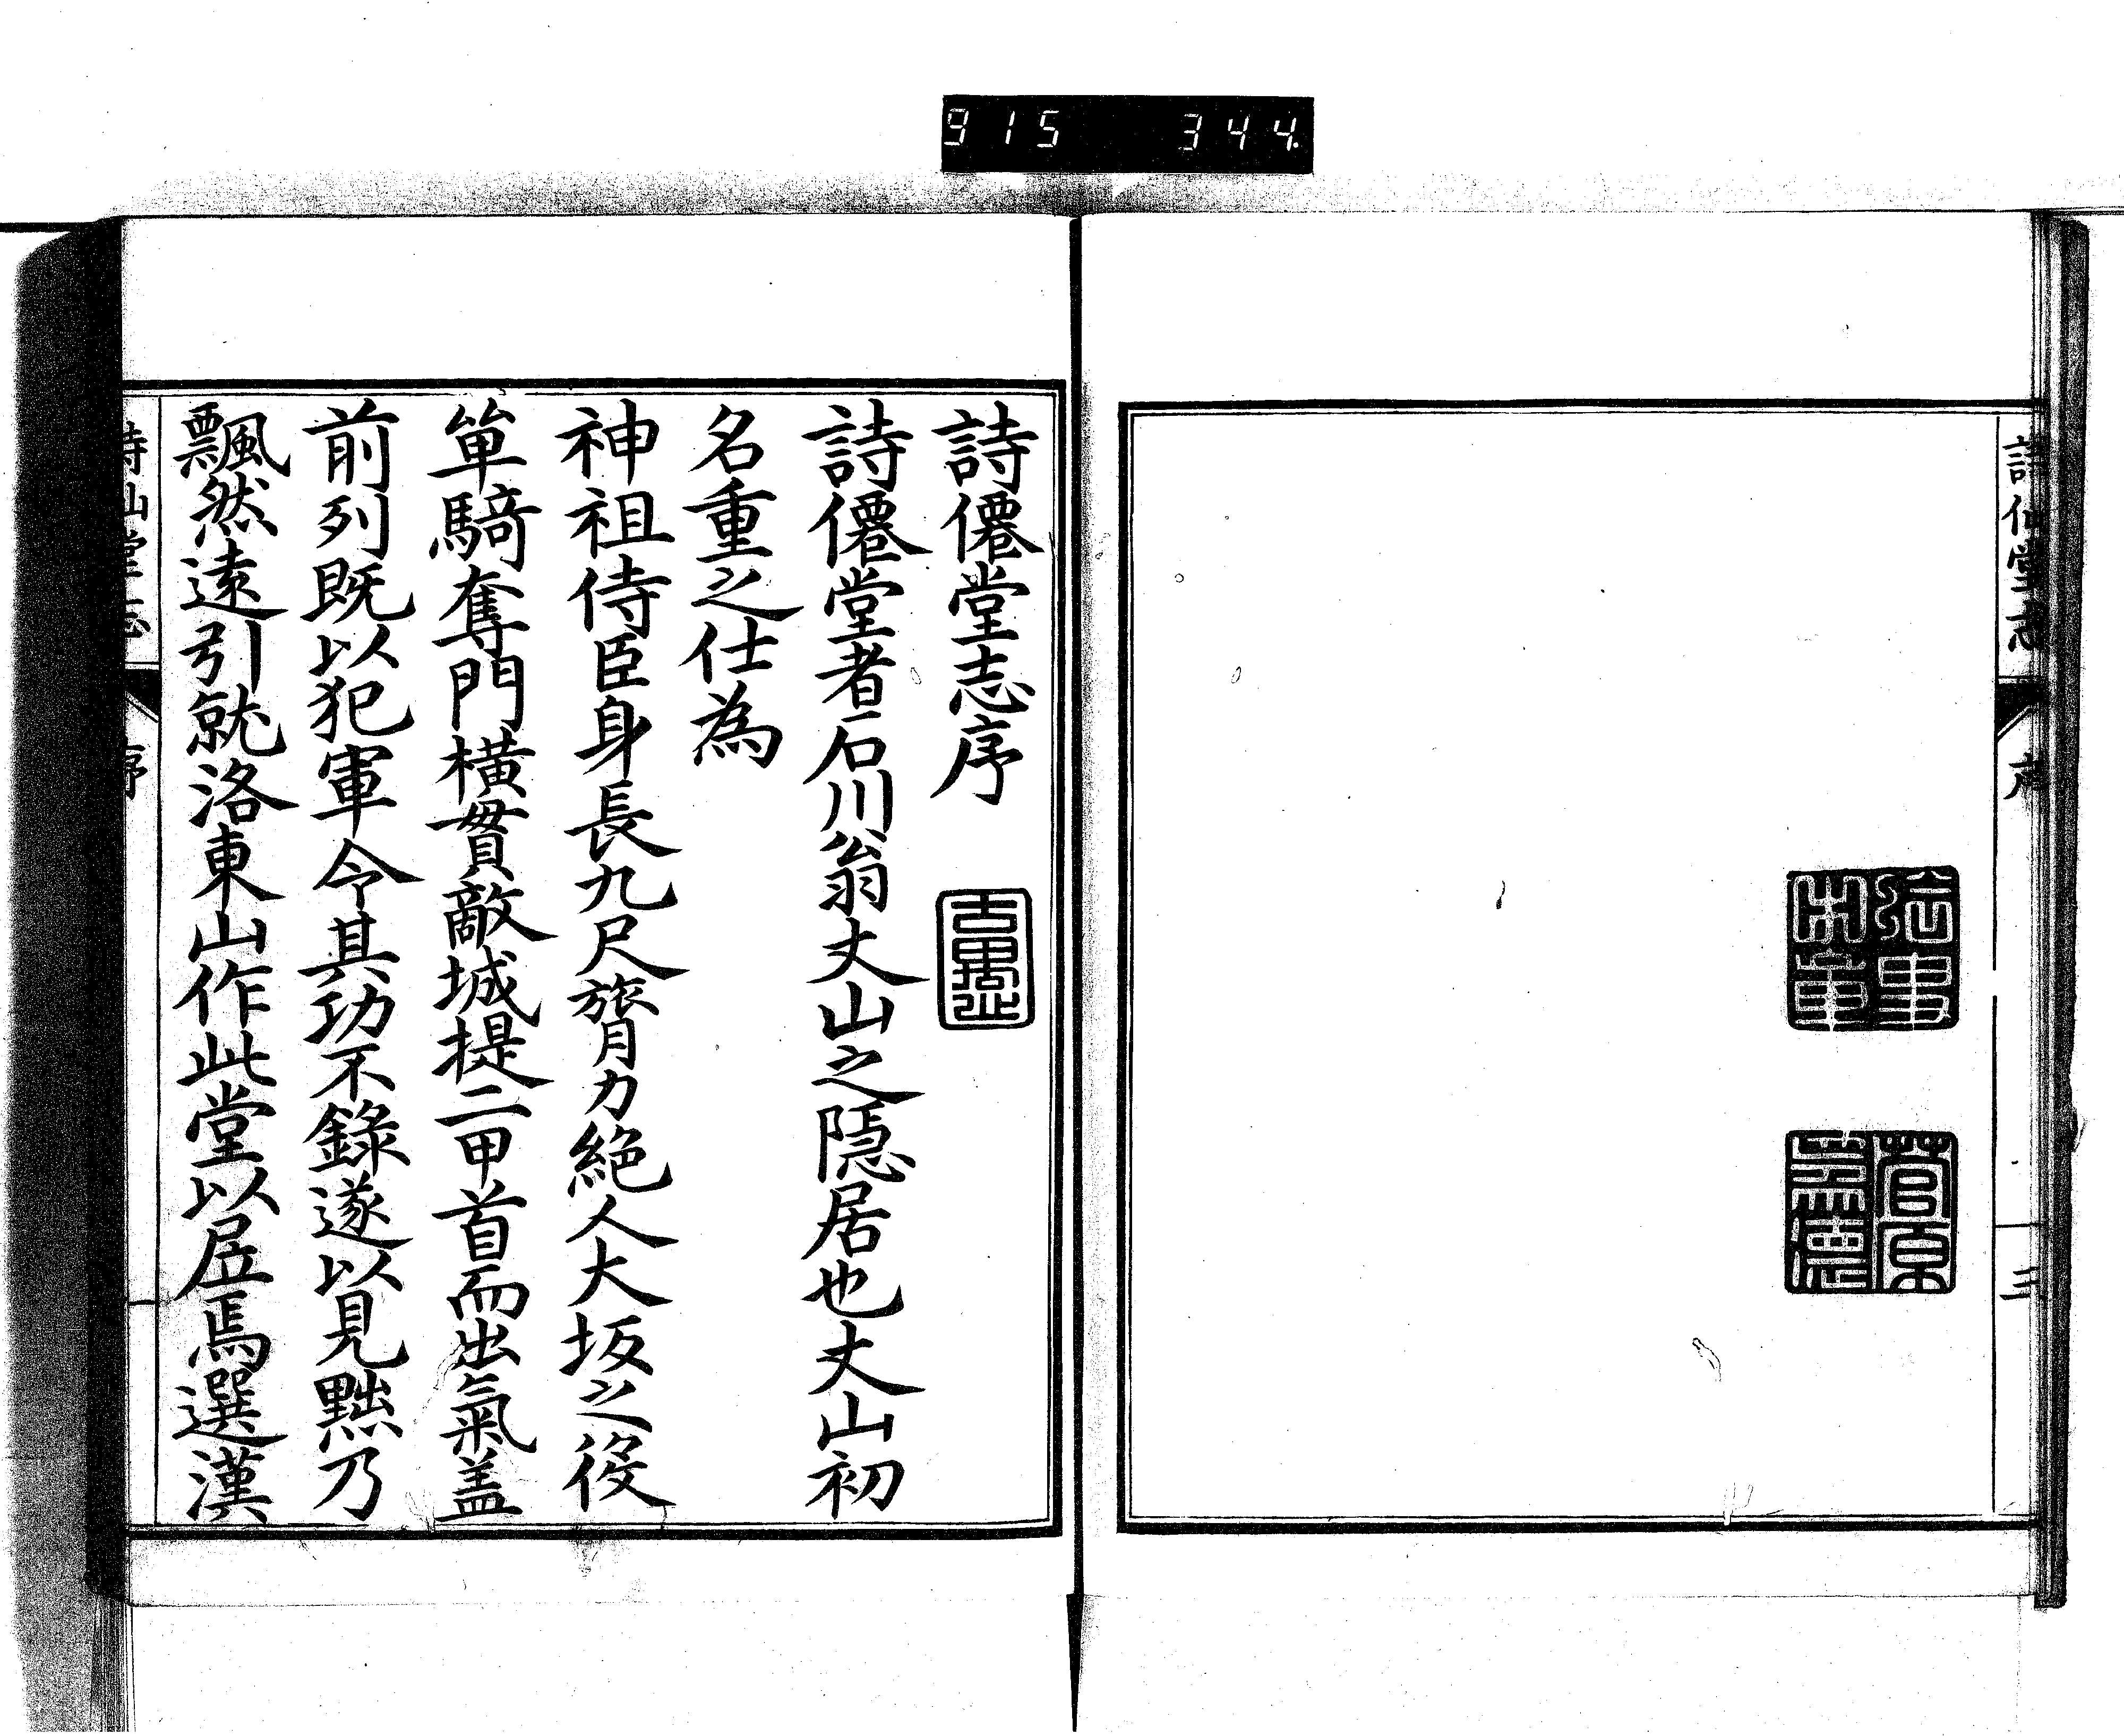 915 344
詩仙堂志
序
三
菅原
詩僊堂志序
詩僊堂者石川翁丈山之隱居也丈山初
名重之仕為
神祖侍臣身長九尺膂力絕人大坂之役
單騎奪門橫貫敵城提二甲首而出氣蓋
前列既以犯軍令其功不錄遂以見黜乃
飄然遠引就洛東山作此堂以居焉選漢
詩仙堂志
序